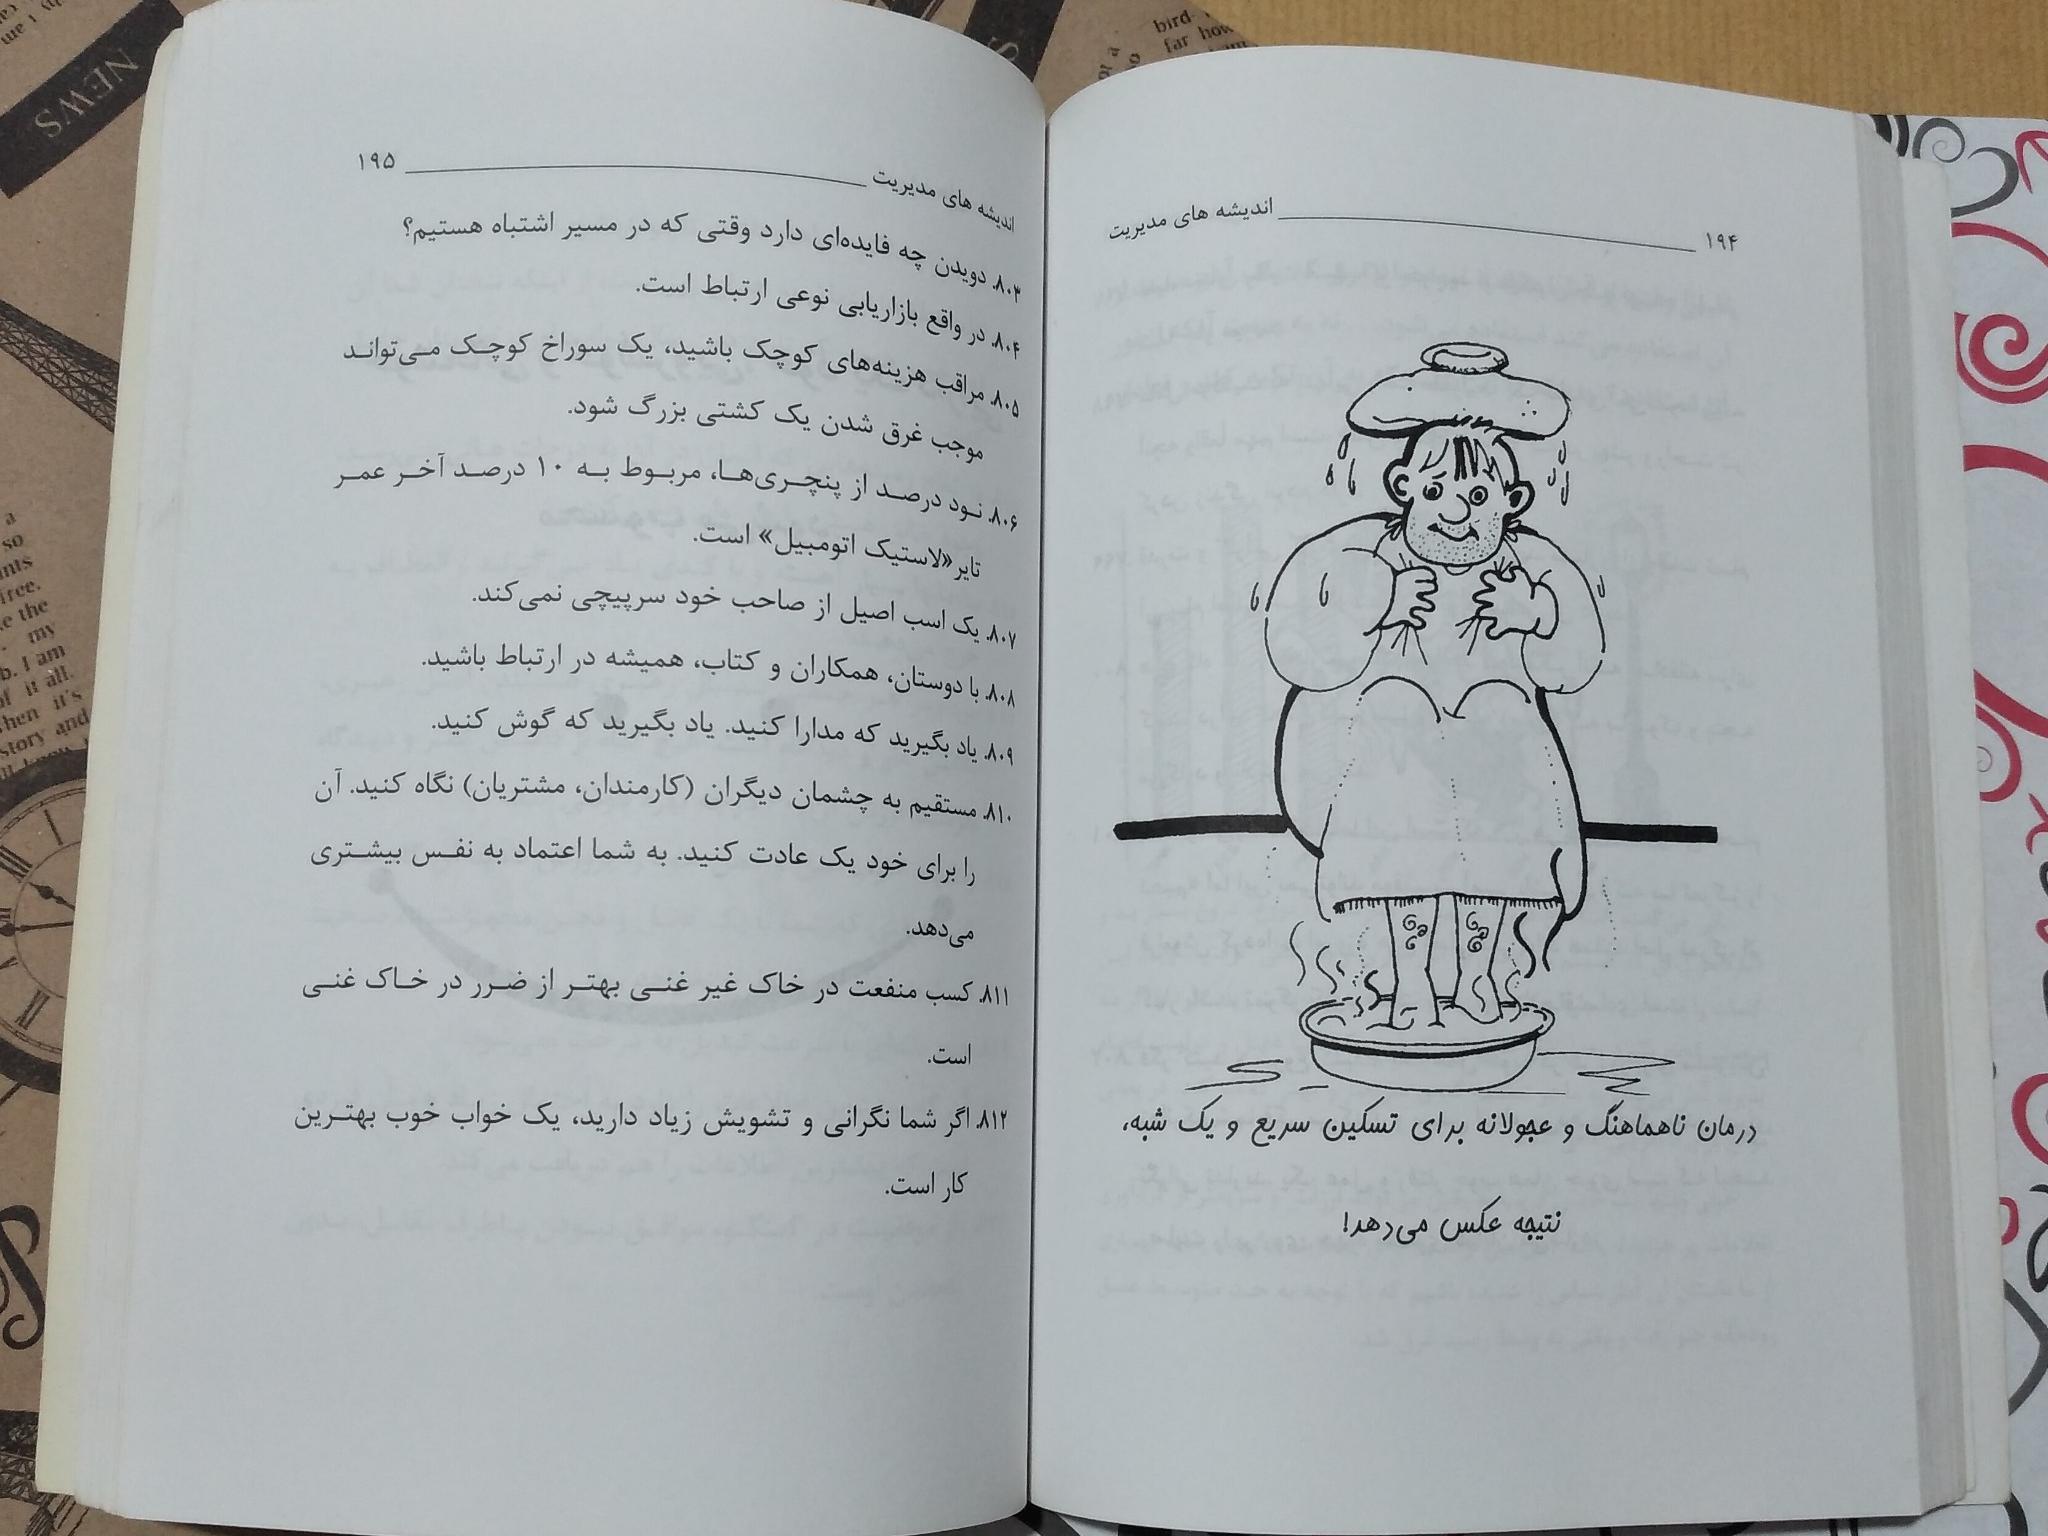 ۱۹۴
اندیشه های مدیریت
درمان ناهماهنگ و عجولانه برای تسکین سریع و یک شبه،
نتیجه عکس می‌دهد!
اندیشه های مدیریت
۱۹۵
۸۰۳. دویدن چه فایده‌ای دارد وقتی که در مسیر اشتباه هستیم؟
۸۰۴. در واقع بازاریابی نوعی ارتباط است.
۸۰۵. مراقب هزینه‌های کوچک باشید، یک سوراخ کوچک می‌تواند
موجب غرق شدن یک کشتی بزرگ شود.
۸۰۶. نود درصد از پنچری‌ها، مربوط به ۱۰ درصد آخر عمر
تایر«لاستیک اتومبیل» است.
۸۰۷. یک اسب اصیل از صاحب خود سرپیچی نمی‌کند.
۸۰۸. با دوستان، همکاران و کتاب، همیشه در ارتباط باشید.
۸۰۹. یاد بگیرید که مدارا کنید. یاد بگیرید که گوش کنید.
۸۱۰. مستقیم به چشمان دیگران (کارمندان، مشتریان) نگاه کنید. آن
را برای خود یک عادت کنید. به شما اعتماد به نفس بیشتری
می‌دهد.
۸۱۱. کسب منفعت در خاک غیر غنی بهتر از ضرر در خاک غنی
است.
۸۱۲. اگر شما نگرانی و تشویش زیاد دارید، یک خواب خوب بهترین
کار است.
NEWS
bird-
far how
a
so
free.
my
I am
of it all.
story and